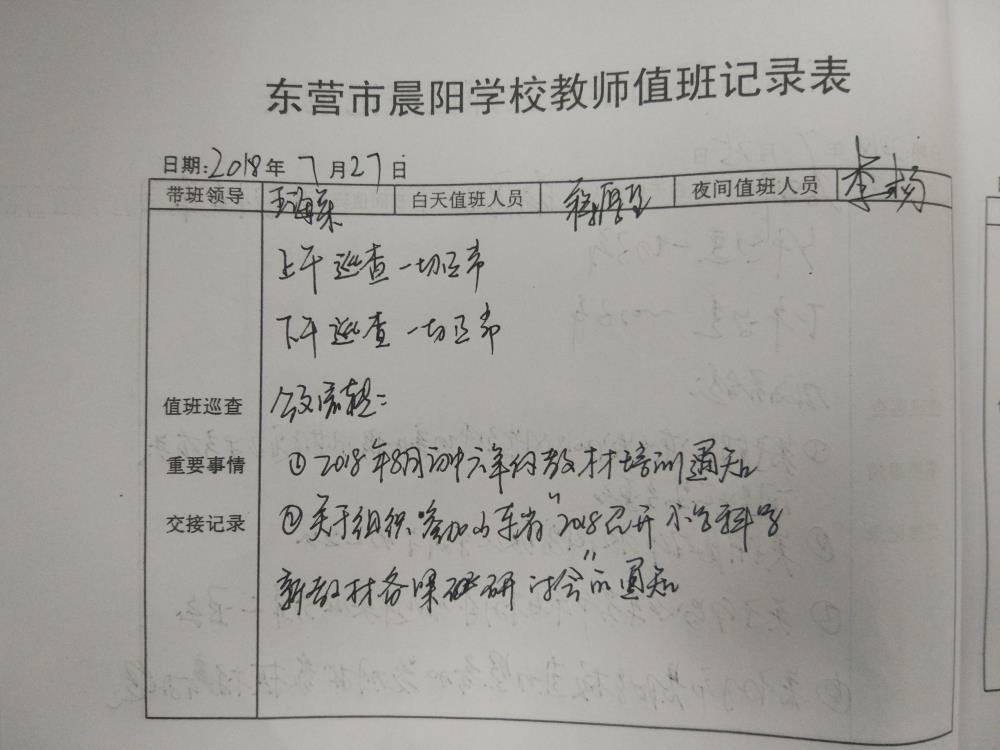 东营市晨阳学校教师值班记录表
日期:2018年7月27日
带班领导 白天值班人员 夜间值班人员 李杨
上午巡查一切正常
下午巡查一切正常
值班巡查
重要事情
交接记录
①2018年8月初中六年的教材培训通知
②关于组织参加山东省"2018召开小学科学
新教材备课研讨会"的通知